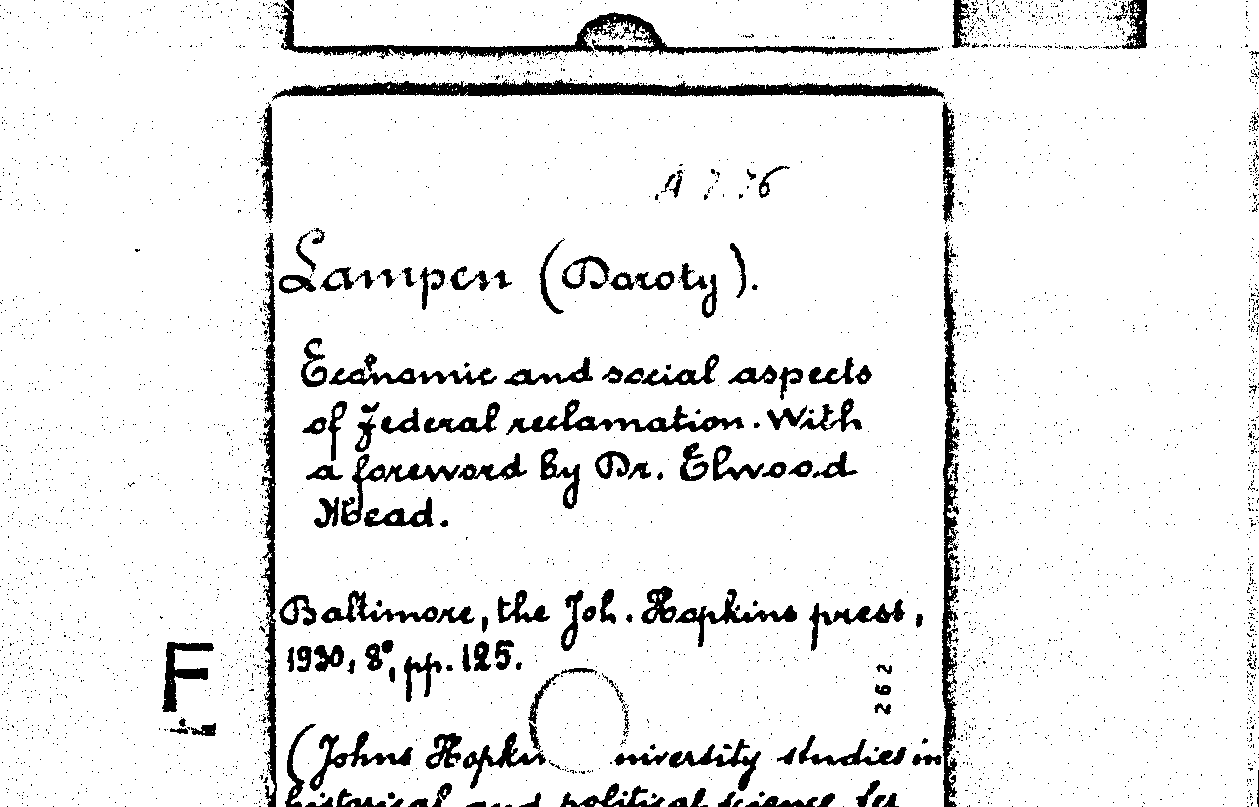 A 7.76
Lampen (Daroty).
Economic and social aspects
of Federal reclamation. With
a foreword by Dr. Elwood
Mead.
Baltimore, the Joh. Hopkins press,
1930, 8°, pp. 125.
F
262
(Johns Hopkin niversity studies in
historical and political science